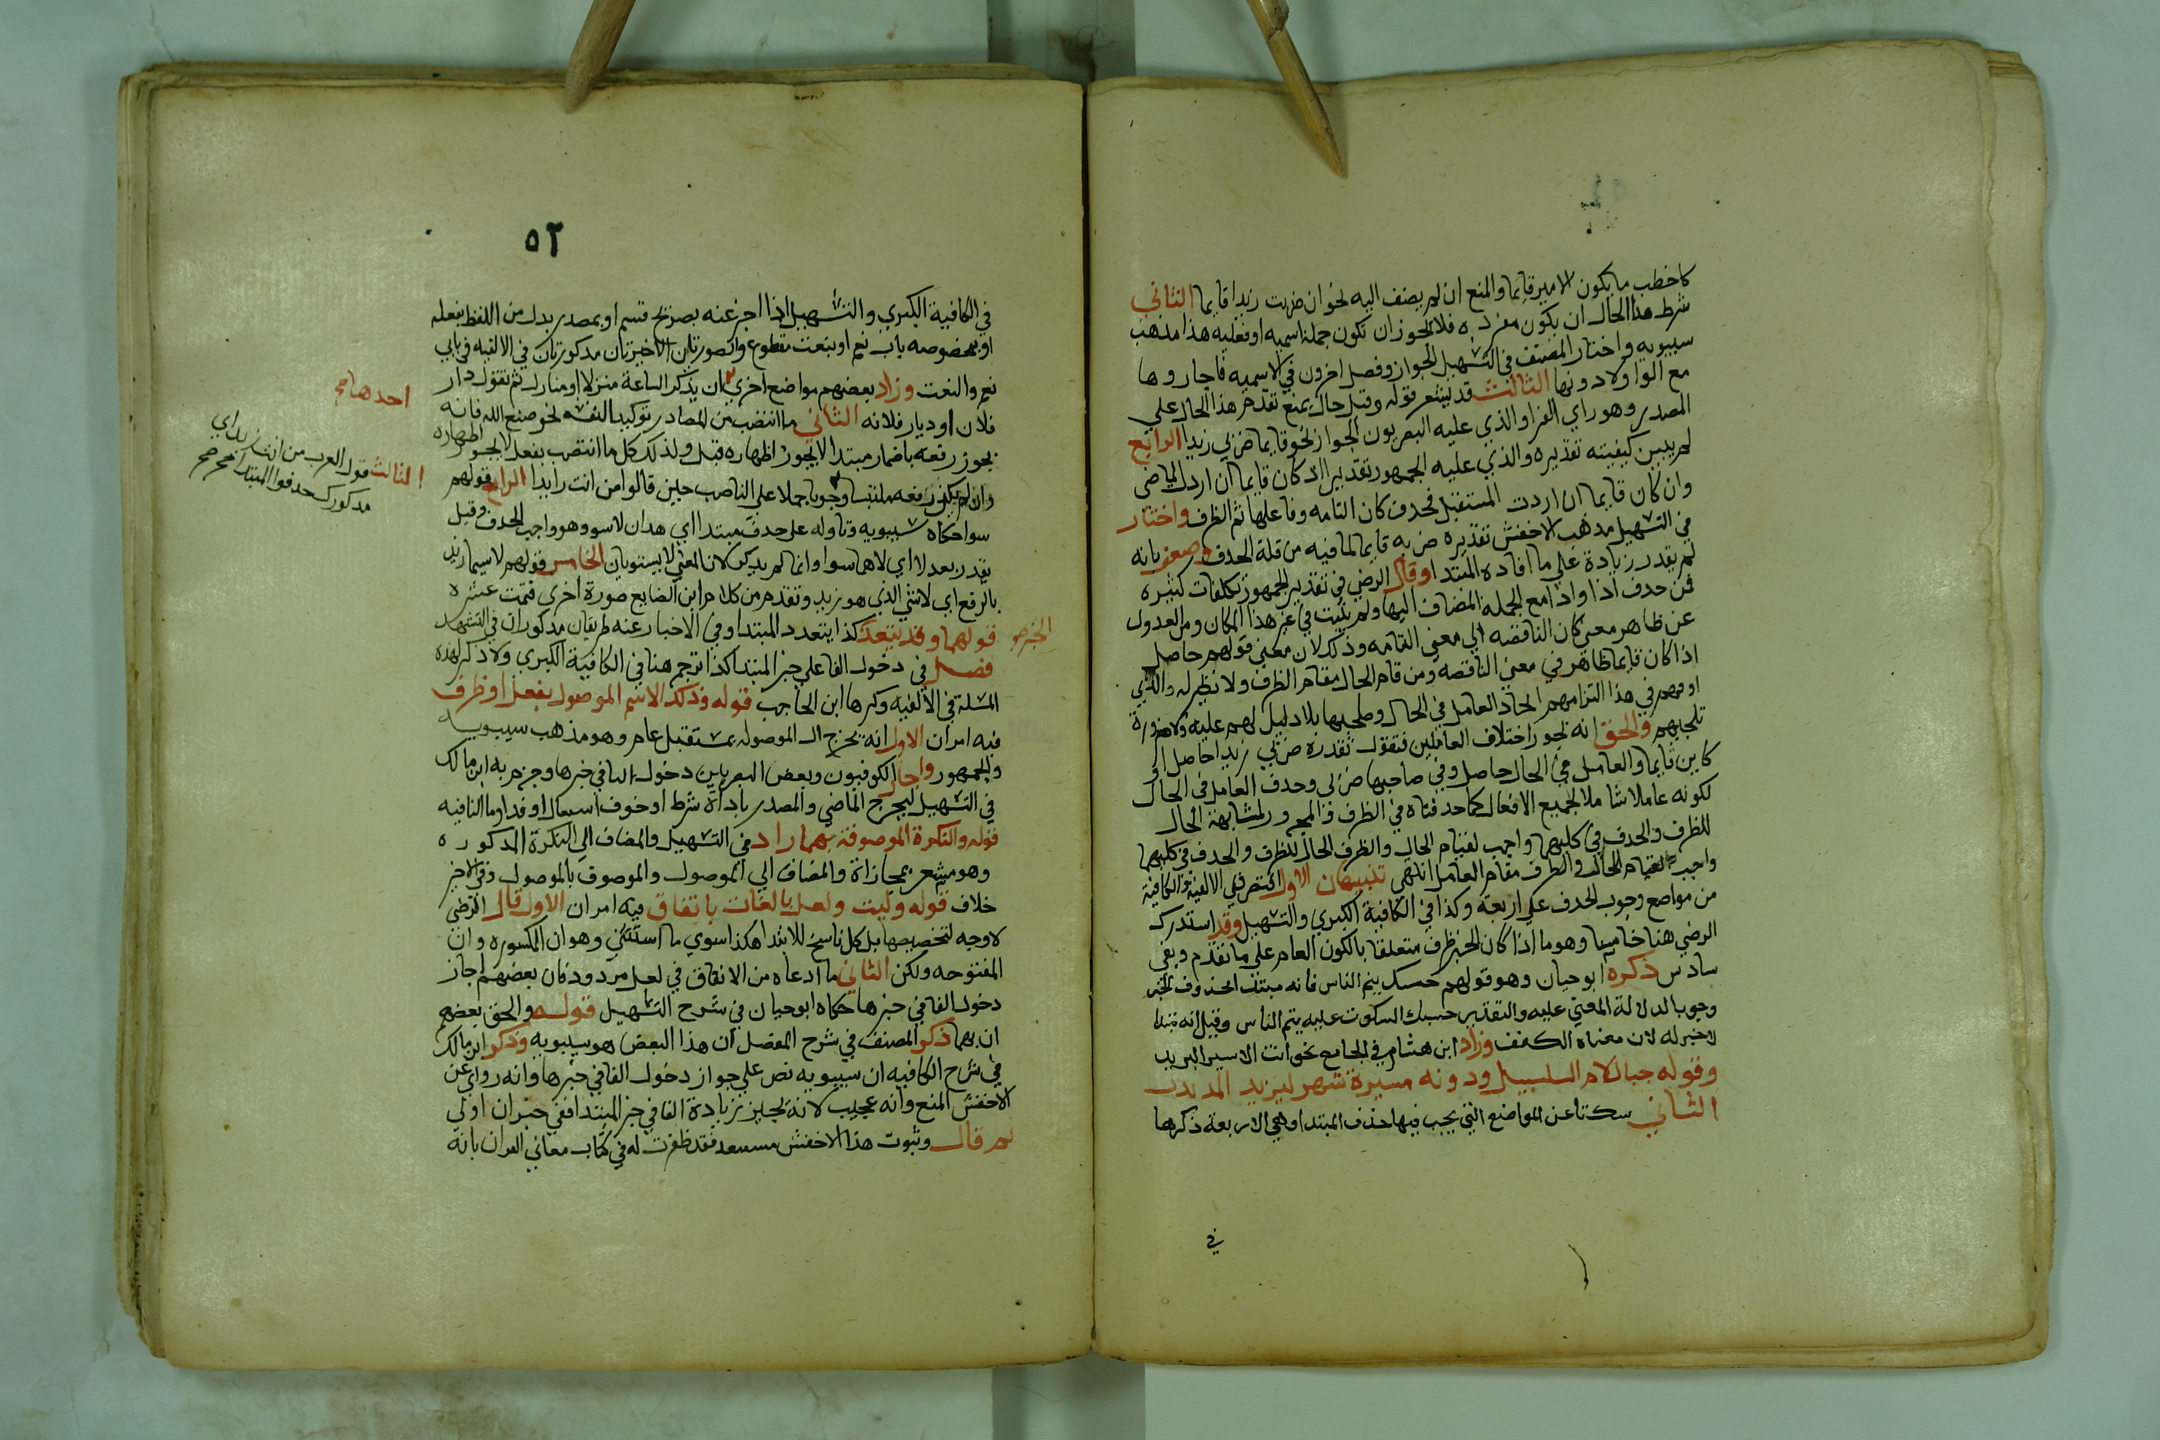 كاخطب ما يكون الامير قايما والمنع ان لم يضف اليه نحوان ضربت زيدا قايما الثاني
شرط هذا الحال ان يكون مفرده فلا يجوز ان تكون جملة اسميه او فعليه هذا مذهب
سيبويه واختار المصنف في التسهيل الجواز وفصل اخرون في الاسميه فاجازوها
مع الواو لا دونها الثالث قد يشعر قوله وقبل حال بمنع تقدم هذا الحال علي
المصدر وهو راي الفرا والذي عليه البصريون الجواز نحو قايما ضربي زيدا الرابع
لم يبين كيفيته تقديره والذي عليه الجمهور تقدير اذ كان قايما ان اردت الماضي
وان كان قايما ان اردت المستقبل فحدف كان التامه وفاعلها ثم الظرف واختار
في التسهيل مذهب الاخفش تقديره ضربه قايما لما فيه من قلة الحدف وضعف بانه
لم يقدر زيادة علي ما افاده المبتدا وقال الرضي في تقدير الجمهور تكلفات كثيره
من حدف اذا واذ مع الجمله المضاف اليها ولم يثبت في غير هذا المكان ومن العدول
عن ظاهر معني كان الناقصه الي معني التامه وذلك لان معني قولهم حاصل
اذا كان قايما ظاهر في معني الناقصه ومن قام الحال مقام الظرف ولا نظير له والذي
اوقعهم في هذا التزامهم اتحاد العامل في الحال وصاحبها بلا دليل لهم عليه ولا ضرورة
تلجيهم والحق انه يجوز اختلاف العاملين فتقول تقدره ضربي زيدا حاصل او
كاين قايما والعامل في الحال حاصل وفي صاحبها ضربي وحدف العامل في الحال
لكونه عاملا شاملا لجميع الافعال كما حدفناه في الظرف والمجرور لمشابهة الحال
للظرف والحدف في كليهما واجب لقيام الحال والظرف الحال للظرف والحدف في كليهما
واجب لقيام الحال والظرف مقام العامل انتهي تنبيهان الاول اقتصر في الالفيه والكافية
من مواضع وجوب الحدف علي اربعة وكذا في الكافية الكبري والتسهيل وقد استدرك
الرضي هنا خامسا وهو ما اذا كان الخبر ظرف متعلقا بالكون العام علي ما تقدم وبقي
سادس ذكره ابو حيان وهو قولهم حسبك ينم الناس فانه مبتدا محذوف الخبر
وجوبا لدلالة المعني عليه والتقدير حسبك السكوت عليه ينم الناس وقيل انه مبتدا
لا خبر له لان معناه اكفف وزاد ابن هشام في الجامع نحو انت الا سير البريد
وقوله حبالام السلسبيل ودونه مسيرة شهر لبريد المدبدب
الثاني سكتا عن المواضع التي يجب فيها حذف المبتدا وهي الاربعة ذكرها
في
٥٢
في الكافية الكبري والتسهيل اذا اخبر عنه بصريح قسم او بمصدر بدل من اللفظ بفعله
او بمخصوصه باب نعم او بنعت مقطوع والصورتان الاخيرتان مدكورتان في الالفيه في بابي
نعم والنعت وزاد بعضهم مواضع اخري ان يذكر الساعة منزلا او منازل ثم تقول دار
فلان او ديار فلانه الثاني ما انتصب من المصادر توكيد النفسه نحو صنع الله فانه
يجوز رفعه باضمار مبتدا لا يجوز اظهاره قبل ولذلك كل ما انتصب بفعل لا يجوز اظهاره
وان لم يكن رفعه ملتبسا وجوبا حملا علي الناصب حين قالوا من انت زيد الرابع قولهم
سوا حكاه سيبويه وتاوله علي حدف مبتدا اي هدان لا سوا وهو واجب الحدف وقيل
يقدر بعد لا اي لا هما سوا وانما لم يكرر لان المعني لا يستويان الخامس قولهم لا سيما زيد
بالرفع اي لا مثل الذي هو زيد وتقدم من كلام ابن الضايع صورة اخري فتمت عشره
قولهما وقد يتعدد كذا يتعدد المبتدا وفي الاخبار عنه طريقان مدكوران في التسهيل
فصل في دخول الفا علي خبر المبتدا كذا ترجم هنا في الكافية الكبري ولا ذكر لهده
المسلة في الالفيه وكرها ابن الحاجب قوله وذلك الاسم الموصول بفعل او ظرف
فيه امران الاول انه يخرج ال الموصوله بمستقبل عام وهو مذهب سيبويه
والجمهور واجاز الكوفيون وبعض البصريين دخول الفا في خبرها وجزم به ابن مالك
في التسهيل ليخرج الماضي والمصدر باداة شرط او حرف استقبال او قد او ما النافيه
قوله والنكرة الموصوفة بهما زاد في التسهيل والمضاف الي النكرة المدكوره
وهو مشعر بمجازاة والمضاف الي الموصول والموصوف بالموصول وفي الاخير
خلاف قوله وليت ولعل مانعان باتفاق فيه امران الاول قال الرضي
لا وجه لتخصيصهما بل كل ناسخ للابتدا هكذا سوي ما استثني وهو ان المكسوره وان
المفتوحه ولكن الثاني ما ادعاه من الاتفاق في لعل مردود فان بعضهم اجاز
دخول الفا في خبرها حكاه ابو حيان في شرح التسهيل قوله والحق بعضهم
ان بهما ذكر المصنف في شرح المفصل ان هذا البعض هو سيبويه وذكر ابن مالك
في شرح الكافيه ان سيبويه نص علي جواز دخول الفا في خبرها وانه روي عن
الاخفش المنع وانه عجيب لانه يجيز زيادة الفا في خبر المبتدا ففي خبر ان اولي
ثم قال وثبوت هذا الاخفش مستبعد فقد ظفرت له في كتاب معاني القران بانه
احدها صح
الثالث قول العرب من انت زيد اي
مدكورك حدفوا المبتدا صح
الخبر صح